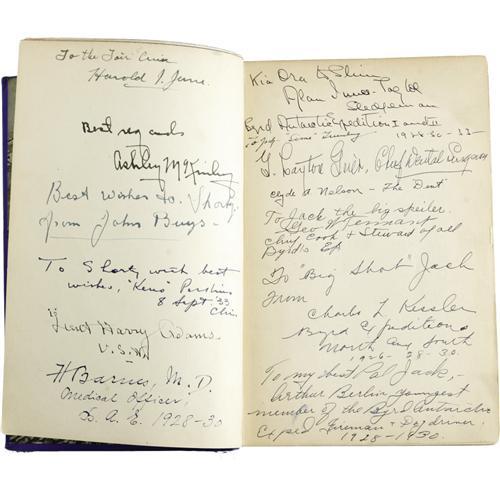 To the Fair Ciner
Harold I. June
Best regards
Ashley McKinley
Best wishes to Shorty
from John Buys -
To Shorty with best
wishes, "Keno" Perkins
8 Sept. '33
Lieut Harry Adams
U.S.N.
H Barnes, M.D.
Medical Officer
B. A. E. 1928-30
Kia Ora to Slim
Alan Innes-Taylor
Sledgeman
Byrd Antarctic Expedition I and II
1928-30 - 33-
G. Layton Grier, Chief Dental Surgeon
Clyde A Nelson - The Dent
To Jack the big speiler.
Geo W Tennant
Chief Cook & Steward of all
Byrd's Ep
To "Big Shot" Jack
From
Charles L Kessler
Byrd Expeditions
North and South
1926-28-30.
To my best Pal Jack,-
Arthur Berlin youngest
member of the Byrd Antarctic
Exped. Fireman + Dog driver.
1928-1930.